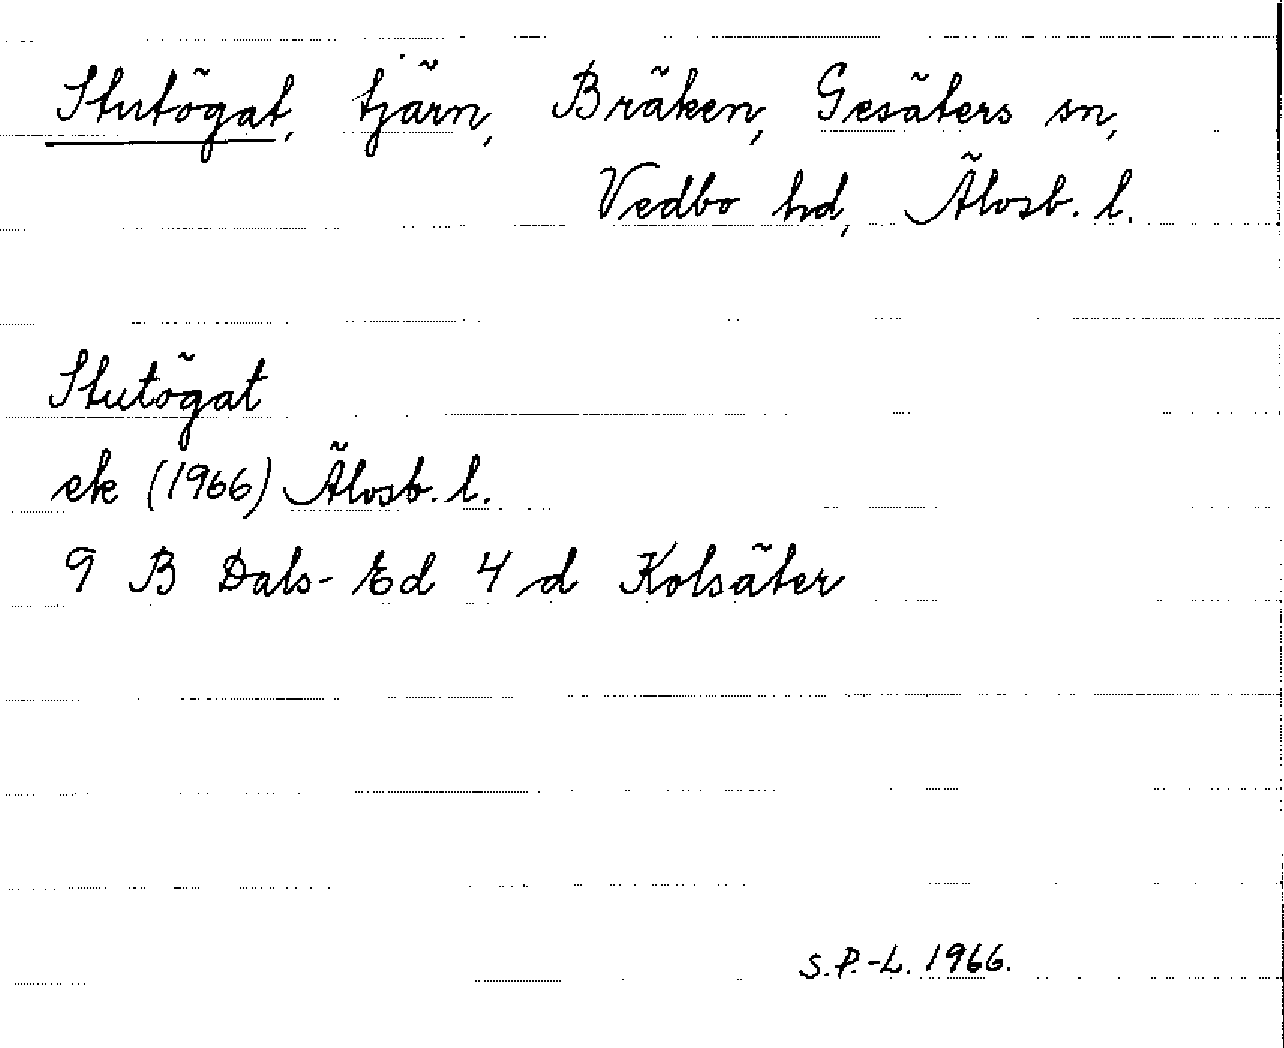 Stutögat, tjärn, Bräken, Gesäters sn,
Vedbo hd, Älvsb. l.
Stutögat
ek (1966) Älvsb. l.
9 B Dals-Ed 4 d Kolsäter
S.P.-L. 1966.